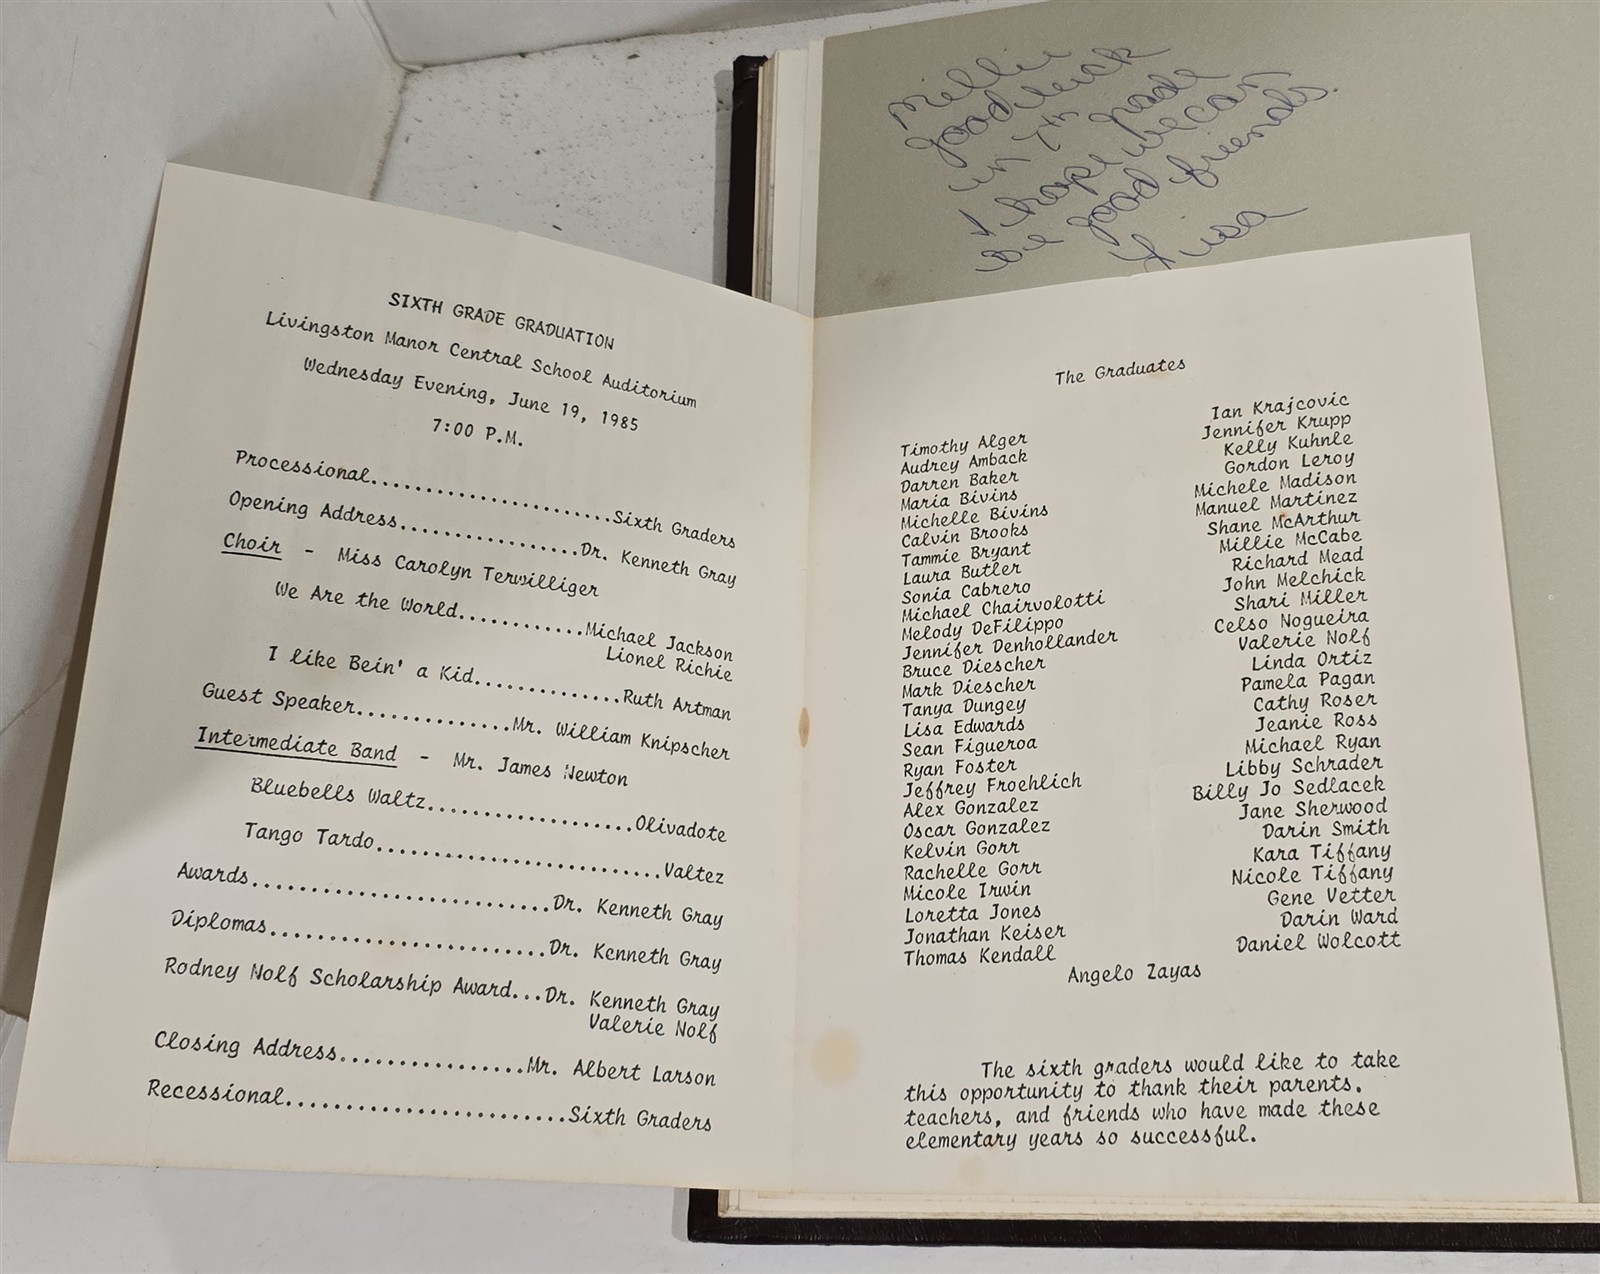 Millie
good luck
in 7th grade
I hope we can
be good friends.
Lisa
SIXTH GRADE GRADUATION
Livingston Manor Central School Auditorium
Wednesday Evening, June 19, 1985
7:00 P.M.
Processional......................Sixth Graders
Opening Address................Dr. Kenneth Gray
Choir - Miss Carolyn Terwilliger
We Are the World............Michael Jackson
Lionel Richie
I like Bein' a Kid.............Ruth Artman
Guest Speaker..............Mr. William Knipscher
Intermediate Band - Mr. James Newton
Bluebells Waltz...................Olivadote
Tango Tardo..........................Valtez
Awards...........................Dr. Kenneth Gray
Diplomas.........................Dr. Kenneth Gray
Rodney Nolf Scholarship Award...Dr. Kenneth Gray
Valerie Nolf
Closing Address.................Mr. Albert Larson
Recessional..........................Sixth Graders
The Graduates
Timothy Alger
Audrey Amback
Darren Baker
Maria Bivins
Michelle Bivins
Calvin Brooks
Tammie Bryant
Laura Butler
Sonia Cabrero
Michael Chairvolotti
Melody DeFilippo
Jennifer Denhollander
Bruce Diescher
Mark Diescher
Tanya Dungey
Lisa Edwards
Sean Figueroa
Ryan Foster
Jeffrey Froehlich
Alex Gonzalez
Oscar Gonzalez
Kelvin Gorr
Rachelle Gorr
Micole Irwin
Loretta Jones
Jonathan Keiser
Thomas Kendall
Ian Krajcovic
Jennifer Krupp
Kelly Kuhnle
Gordon Leroy
Michele Madison
Manuel Martinez
Shane McArthur
Millie McCabe
Richard Mead
John Melchick
Shari Miller
Celso Nogueira
Valerie Nolf
Linda Ortiz
Pamela Pagan
Cathy Roser
Jeanie Ross
Michael Ryan
Libby Schrader
Billy Jo Sedlacek
Jane Sherwood
Darin Smith
Kara Tiffany
Nicole Tiffany
Gene Vetter
Darin Ward
Daniel Wolcott
Angelo Zayas
The sixth graders would like to take
this opportunity to thank their parents.
teachers, and friends who have made these
elementary years so successful.